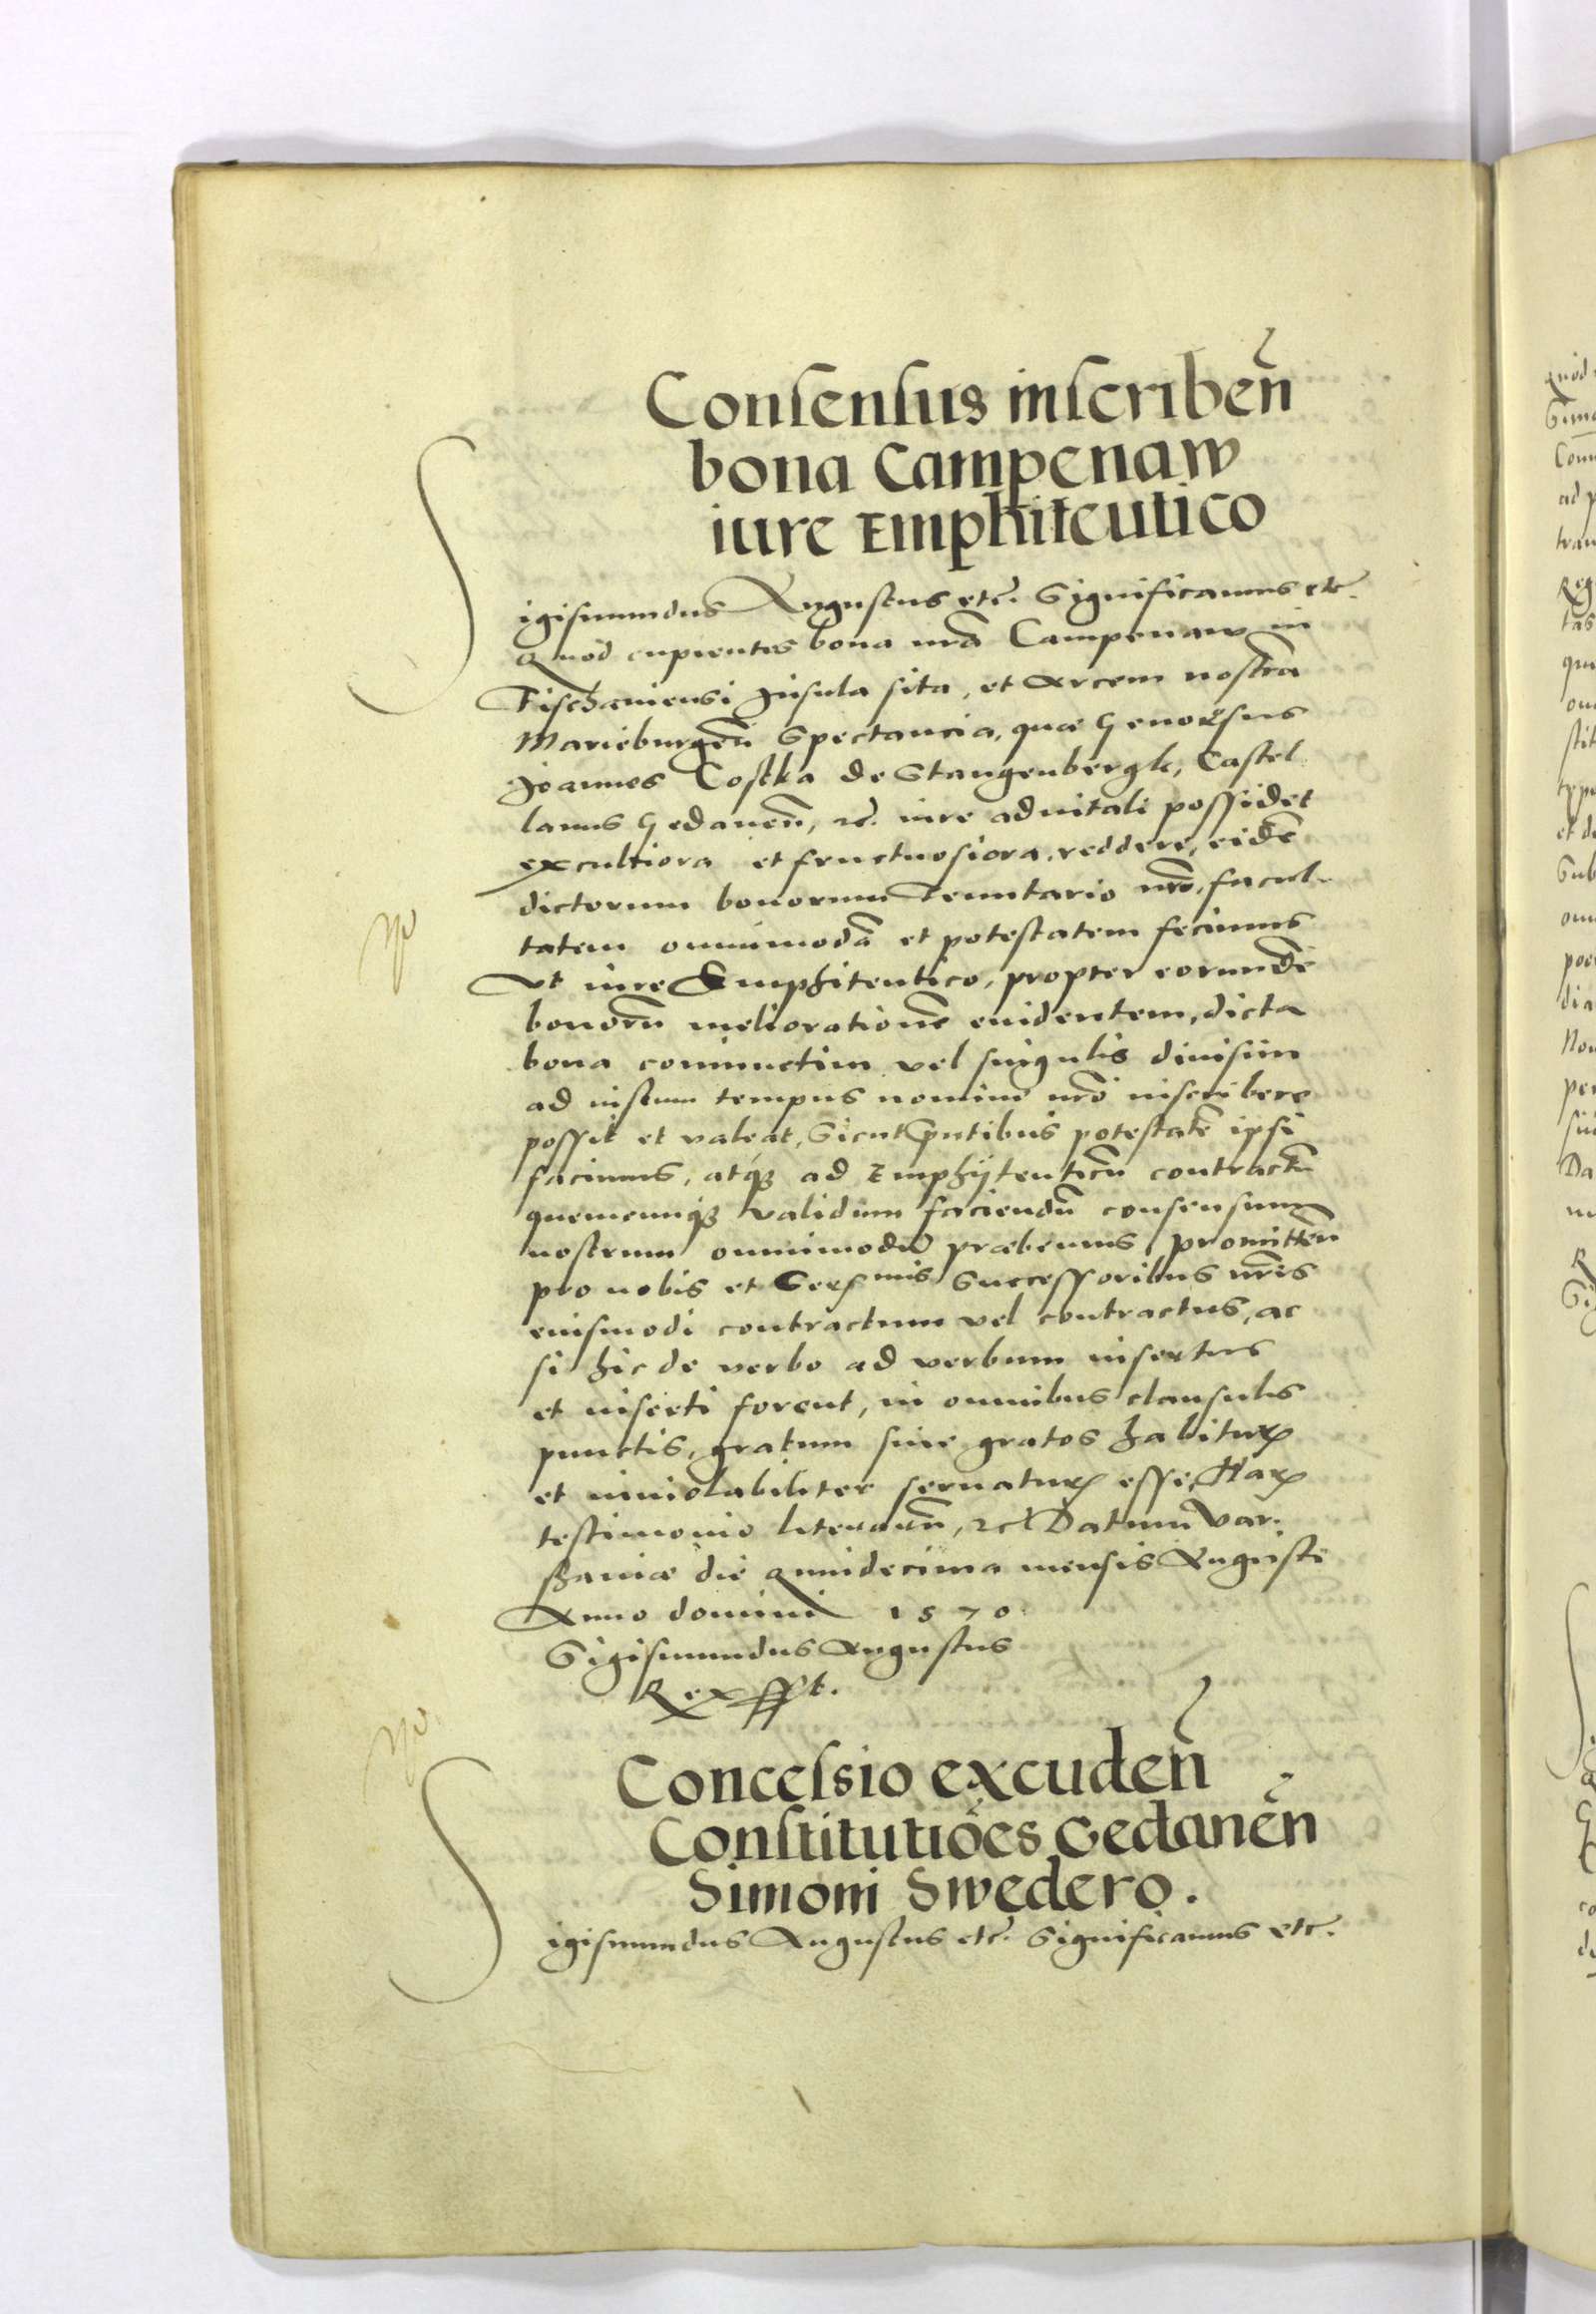 Consensus inscriben̄
bona Campenaw
iure Emphiteutico
Sigismundus Augustus etc̄. Significamus etc̄.
Quod cupientes bona nr̄a Campenaw in
Fischaniensi Insula sita, et Arcem nostrā
Marieburgen̄ Spectancia, quæ Generosus
Joannes Costka de Stangenbergk, Castel
lanus Gedanen̄, etc. iure aduitali possidet
excultiora et fructuosiora reddere, eidē
dictorum bonorum Tenutario nr̄o, facul-
tatem omnimodā et potestatem fecimus
Ut iure Emphiteutico, propter eorundē
bonorū meliorationē euidentem, dicta
bona coniunctim vel singulis diuisim
ad iustum tempus nomine nr̄o inscribere
possit et valeat, Sicut pn̄tibus potestatē ipsi
facimus, atq3 ad Emphÿteuticū contractū
quemcunq3 validum faciendū consensum
nostrum omnimodū præbemus, promitten̄
pro nobis et Serēmis Successoribus nr̄is
euismodi contractum vel contractus, ac
si hic de verbo ad verbum insertus
et inserti forent, in omnibus clausulis
punctis, gratum siue gratos habiturꝝ
et inuiolabiliter seruaturꝝ esse, Harꝝ
testimonio literarū, etc. Datum Var-
shauiæ die quindecima mensis Augusti
Anno domini 1570
Sigismundus Augustus
Rex sst.
Concessio excuden̄
Constitutiōes Gedanen̄
Simoni Swedero.
Sigismundus Augustus etc̄. Significamus etc̄.